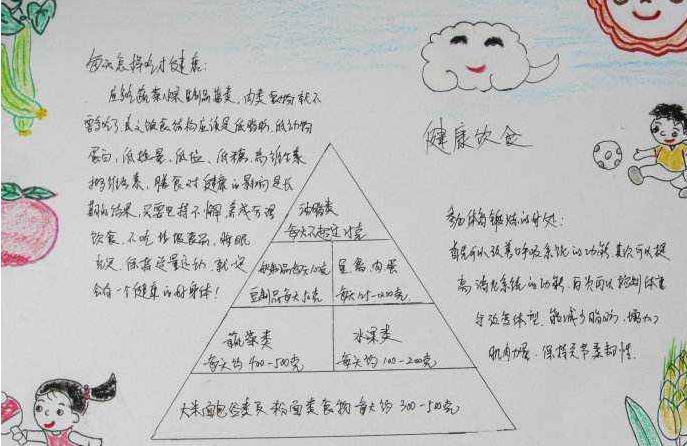 每天怎样吃才健康:
应多吃蔬菜水果豆制品菌类，肉类食物就不
需多吃了，总之饮食结构应该是低脂肪，低动物
蛋白，低能量，低盐，低糖，高维生素
膳食对健康的影响是长
期的结果，只需坚持不懈，养成合理
饮食，不吃垃圾食品，睡眠
充足，保持适量运动，就一定
会有一个健康的好身体！
健康饮食
油脂类
每天不超过25克
奶制品每天100克
豆制品每天50克
鱼、禽、肉、蛋
每天125-200克
蔬菜类
每天约400-500克
水果类
每天约100-200克
大米面包谷类及粉面类食物每天约300-500克
参加体育锻炼的好处:
首先可以改善呼吸系统的功能，其次可以提
高消化系统的功能，再次可以控制体重
与改善体型，能减少脂肪，增加
肌肉力量，保持关节柔韧性.